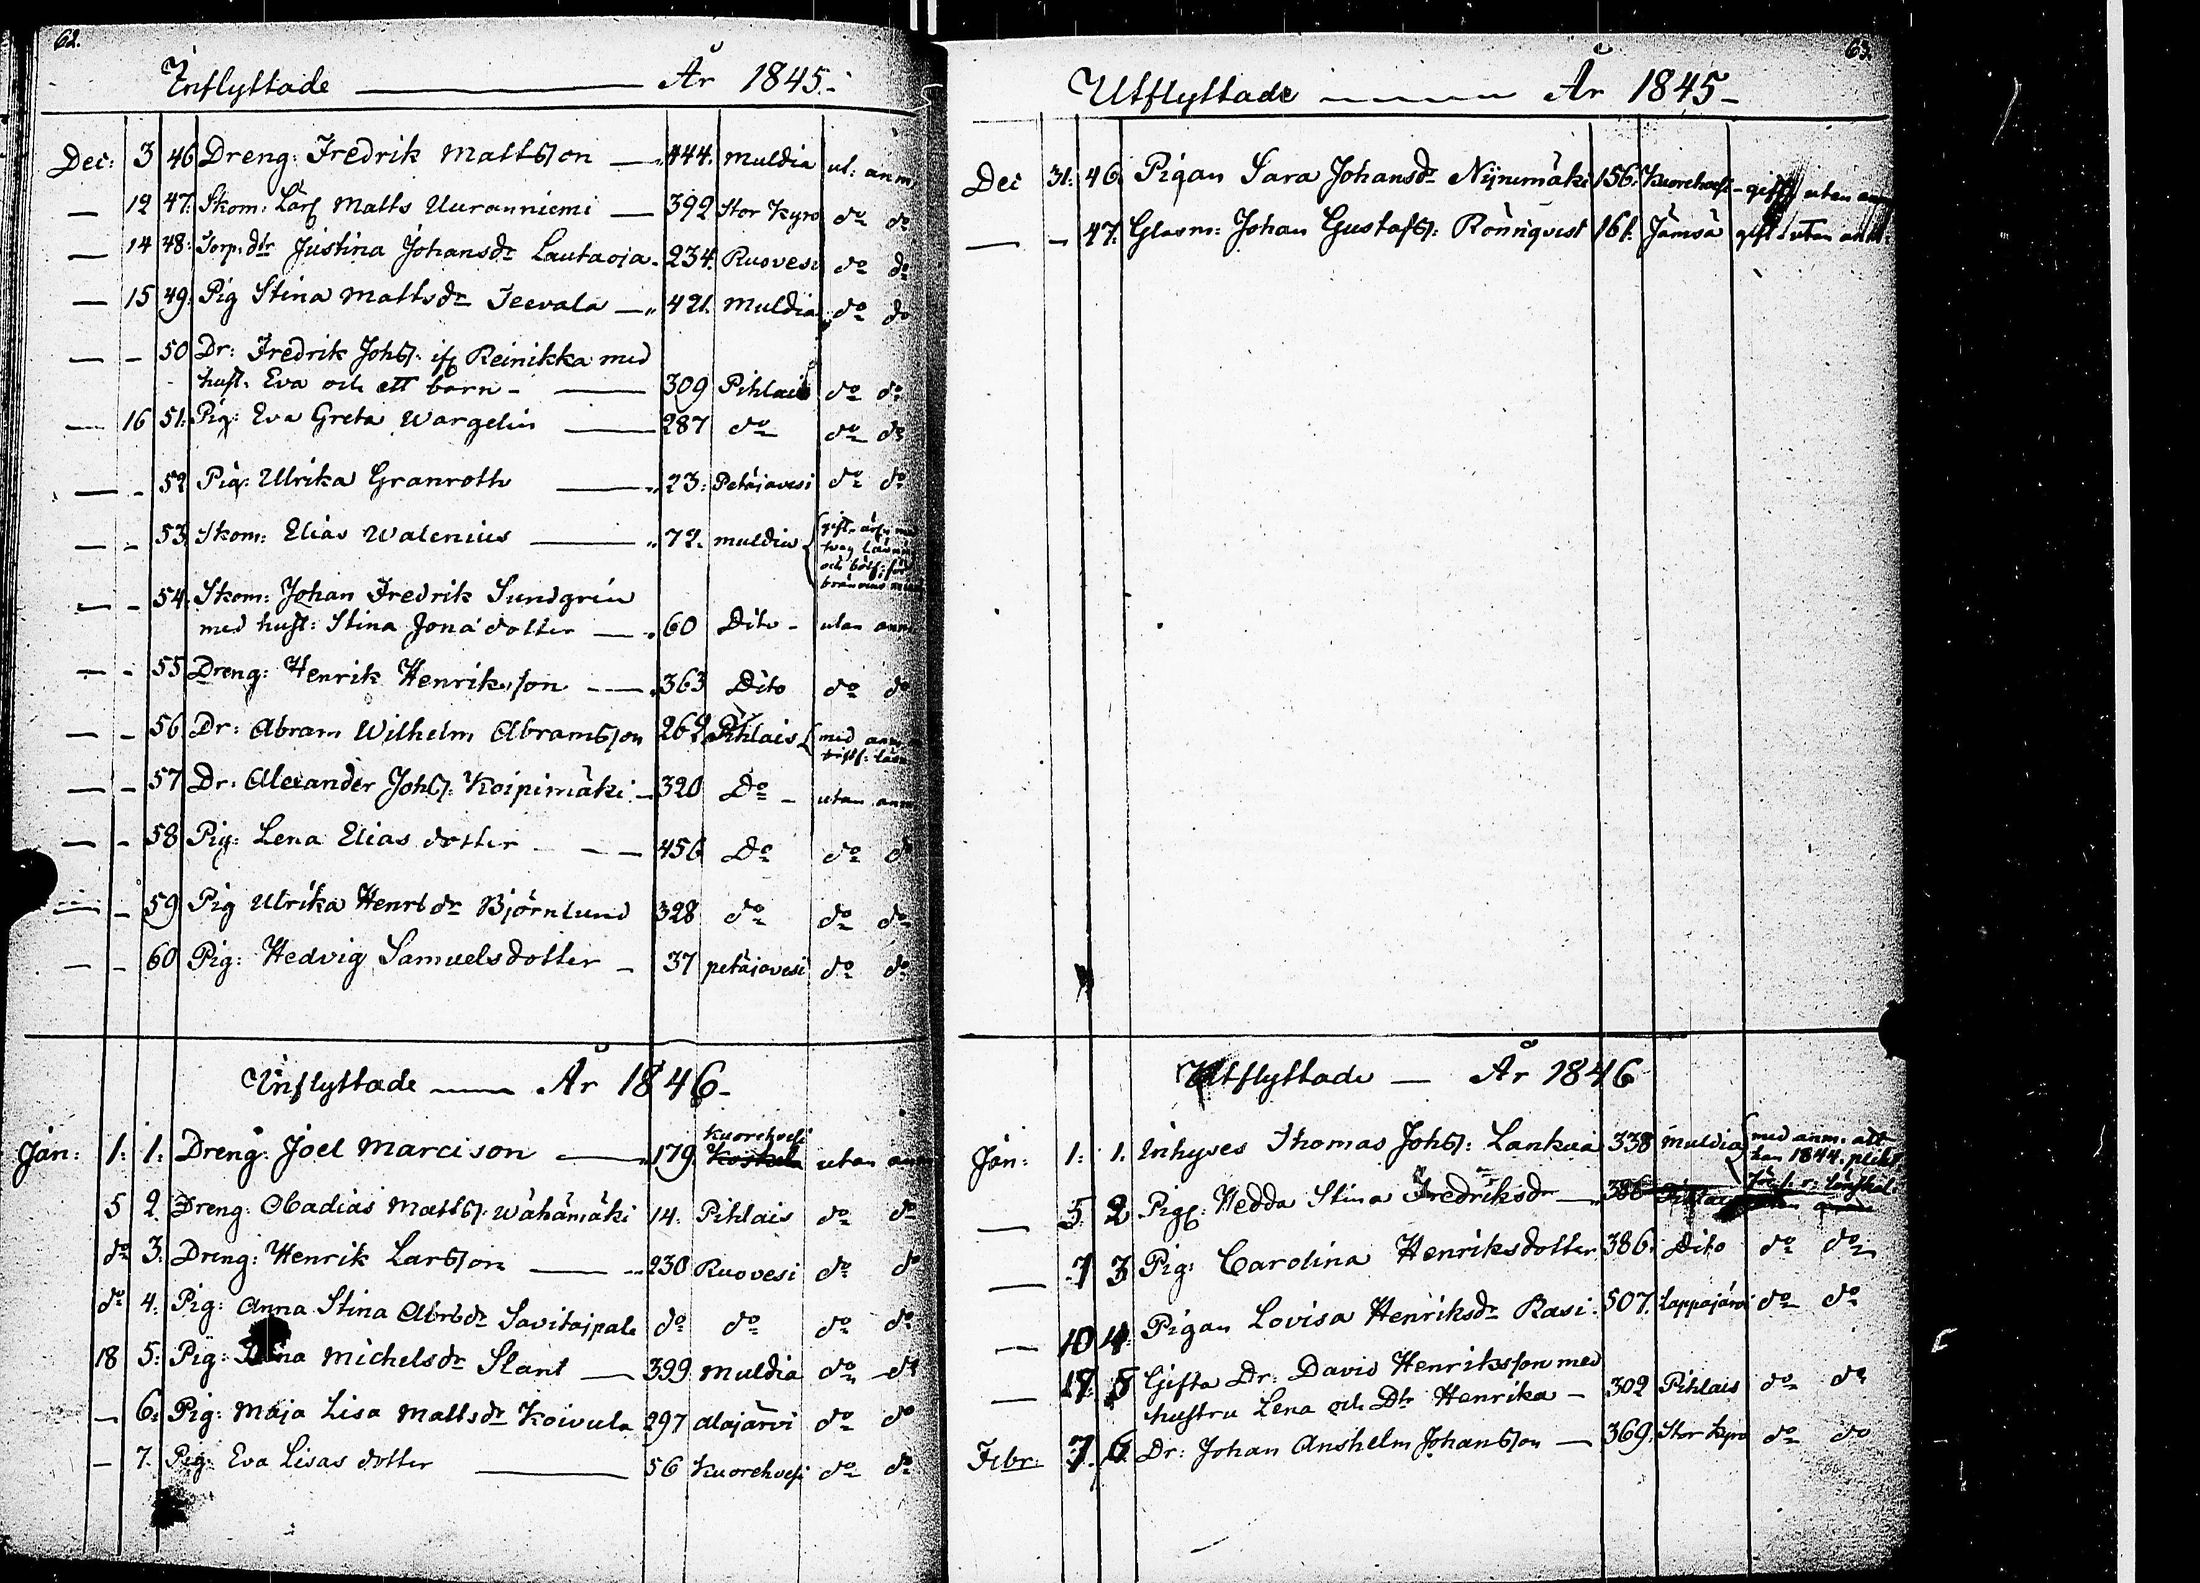 62.
Inflyttade — År 1845.
Dec: 3 46 Dreng: Fredrik Mattsson — 444. Muldia ut: anm
— 12 47. Skom: Lärl Matts Uuranniemi — 392 Stor Kyro do do
— 14 48: Torp. dtr Justina Johansdr Lautaoja. 234. Ruovesi do do
— 15 49. Pig Stina Mattsdr Teevala — 421. Muldia do do
— - 50 Dr: Fredrik Johss: Reinikka med
hust. Eva och ett barn - — 309 Pihlais do do
— 16 51: Pig: Eva Greta Wargelin — 287 do do do
— - 52 Pig: Ulrika Granroth — 23: Petäjävesi do do
— - 53. Skom: Elias Walenius — 72. muldia
och
— - 54. Skom: Johan Fredrik Sundgrén
med hust: Stina Jonädotter — 60 Dito - utan anm
— - 55 Dreng: Henrik Henriksson — 363 Dito do do
— - 56 Dr: Abram Wilhelm Abramsson 262 Pihlais med anm
— - 57 Dr: Alexander Johss: Koipimäki — 320 Do - utan anm
— - 58 Pig: Lena Elias dotter — 456 Do do do
— - 59 Pig Ulrika Henrsdr Björnlund 328 do do do
— - 60 Pig: Hedvig Samuelsdotter - 37 petäjävesi do do
Inflyttade — År 1846-
Jan: 1: 1: Dreng: Joel Marcisson — 179. Kuorehvesi Koskela utan anm
5 2. Dreng: Obadias Mattss: Wähämäki 14. Pihlais do do
do 3. Dreng: Henrik Larsson — 230 Ruovesi do do
do 4. Pig: Anna Stina Abrsdr Savitaipale do do do do
18 5: Pig: Michelsdr Slant — 399 Muldia do do
— 6: Pig: Maja Lisa Mattsdr Koivula 297 Alajärvi do do
— 7. Pig: Eva Lisas dotter — 56 Kuorehvesi do do
63.
Utflyttade — År 1845-
Dec 31: 46. Pigan Sara Johansdr Nijnimäki 156: Kuorehvesi - gift utan anm
— - 47: Glasm: Johan Gustafss: Rönnqvist 161. Jämsä gift utan anm:
Utflyttade — År 1846
Jan: 1: 1. Inhyses Thomas Johss: Lankua 338 Muldia med anm: att
han 1844 plikt
— 5 2 Pig: Hedda Stina Fredriksdr — 386 Pihlais
— 7 3 Pig: Carolina Henriksdotter 386. Dito do do
— 10 4: Pigan Lovisa Henriksdr Rasi. 507. Lappajärvi do do
— 17 5 Gifta Dr: David Henriksson med
hustru Lena och Dtr Henrika - 302 Pihlais do do
Febr: 7. 6. Dr: Johan Anshelm Johansson — 369. Stor Kyro do do